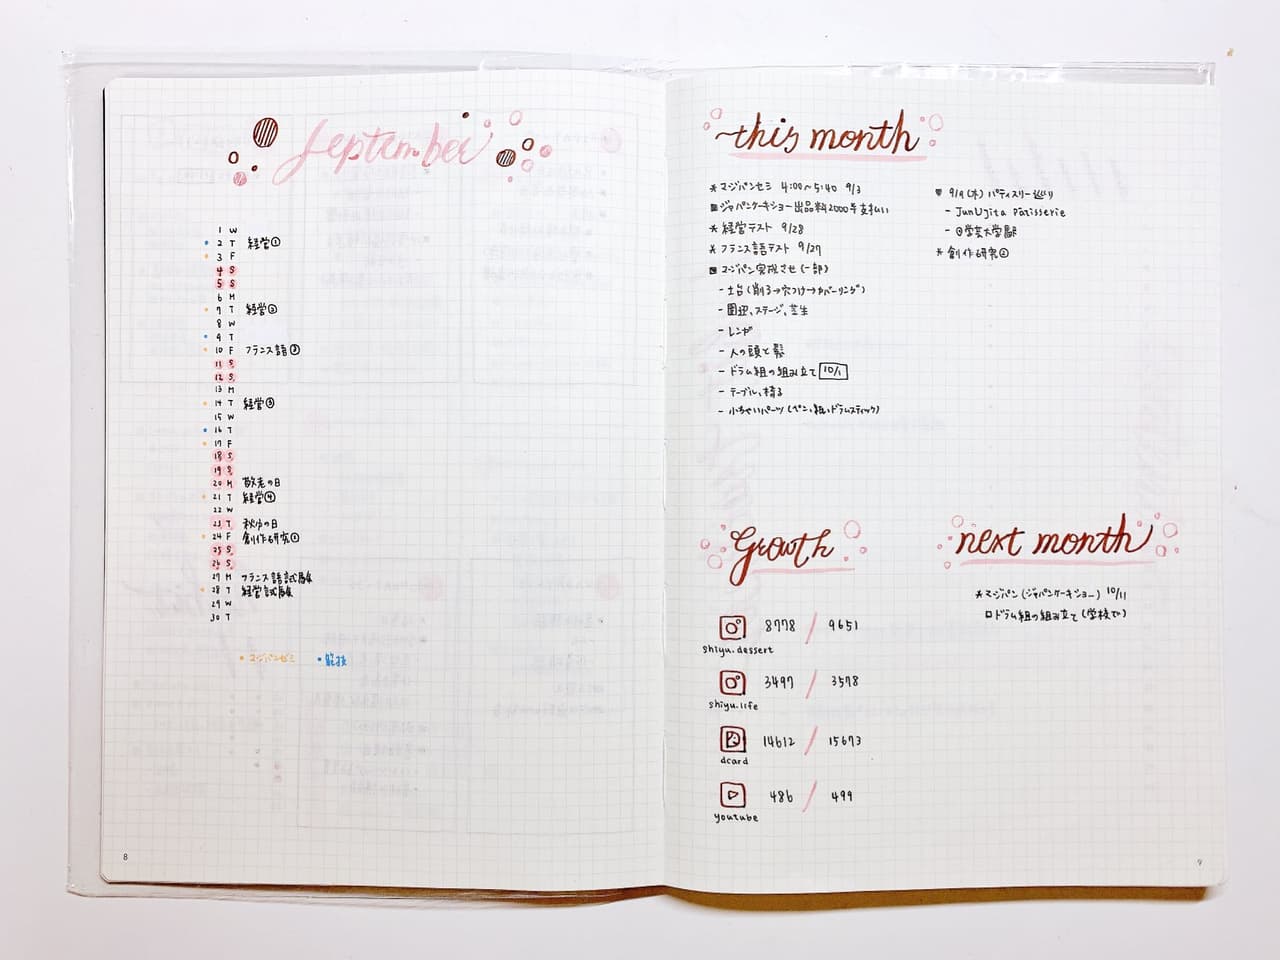 September
1 W
2 T 経営①
3 F
4 S
5 S
6 M
7 T 経営②
8 W
9 T
10 F フランス語②
11 S
12 S
13 M
14 T 経営③
15 W
16 T
17 F
18 S
19 S
20 M 敬老の日
21 T 経営④
22 W
23 T 秋分の日
24 F 創作研究①
25 S
26 S
27 M フランス語試験
28 T 経営試験
29 W
30 T
マジパンゼミ
8
this month
マジパンゼミ 4:00〜5:40 9/3
ジャパンケーキショー出品料2000号支払い
経営テスト 9/28
フランス語テスト 9/27
マジパン完成させ(一部)
- 土台(削る→穴つけ→カバーリング)
- 囲辺、ステージ、芝生
- レンガ
- 人の頭と髪
- ドラム組の組み立て 10/1
- テーブル、椅子
- 小ちゃいパーツ(ペン、紙、ドラムスティック)
9/9(木) パティスリー巡り
- JunUjita Pâtisserie
- @学芸大学駅
創作研究②
Growth
8778 / 9651
shiyu.dessert
3497 / 3578
shiyu.life
14612 / 15673
dcard
486 / 499
youtube
next month
マジパン(ジャパンケーキショー) 10/11
ドラム組の組み立て(学校で)
9